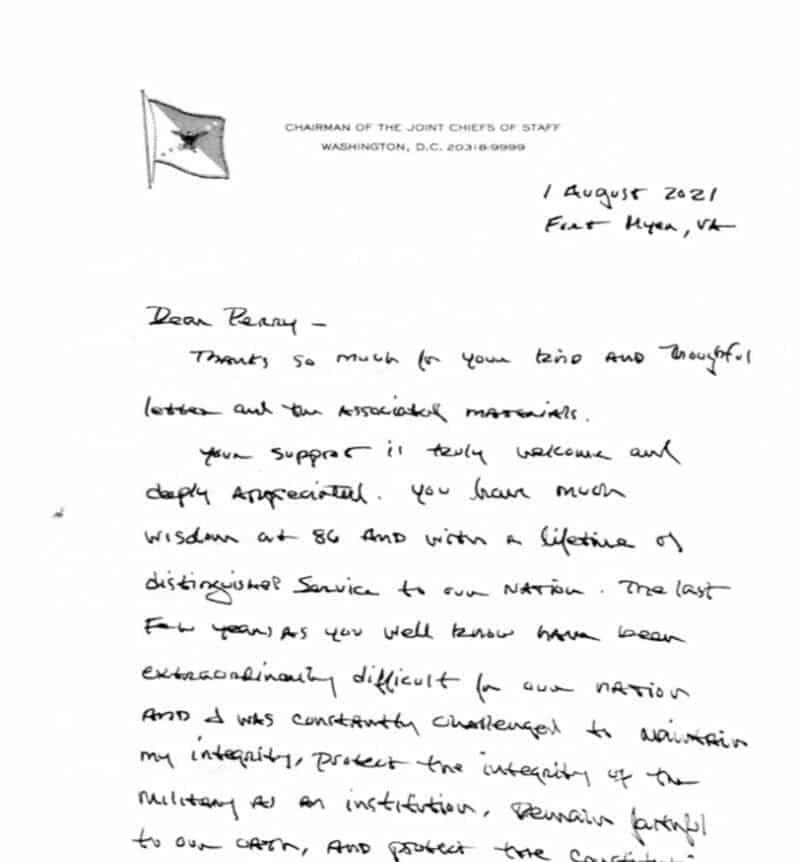 CHAIRMAN OF THE JOINT CHIEFS OF STAFF
WASHINGTON, D.C. 20318-9999
1 August 2021
Fort Myer, VA
Dear Perry –
Thanks so much for your kind AND thoughtful
letter and the Associated MATERIALS.
Your support is truly welcome and
deeply Appreciated. You have much
wisdom at 86 AND with a lifetime of
distinguished Service to our NATION. The last
Few years, As you well know have been
extraordinarily difficult for our NATION
AND I was constantly challenged to MAINTAIN
my integrity, protect the integrity of the
military as an institution, Remain faithful
to our OATH, AND protect the